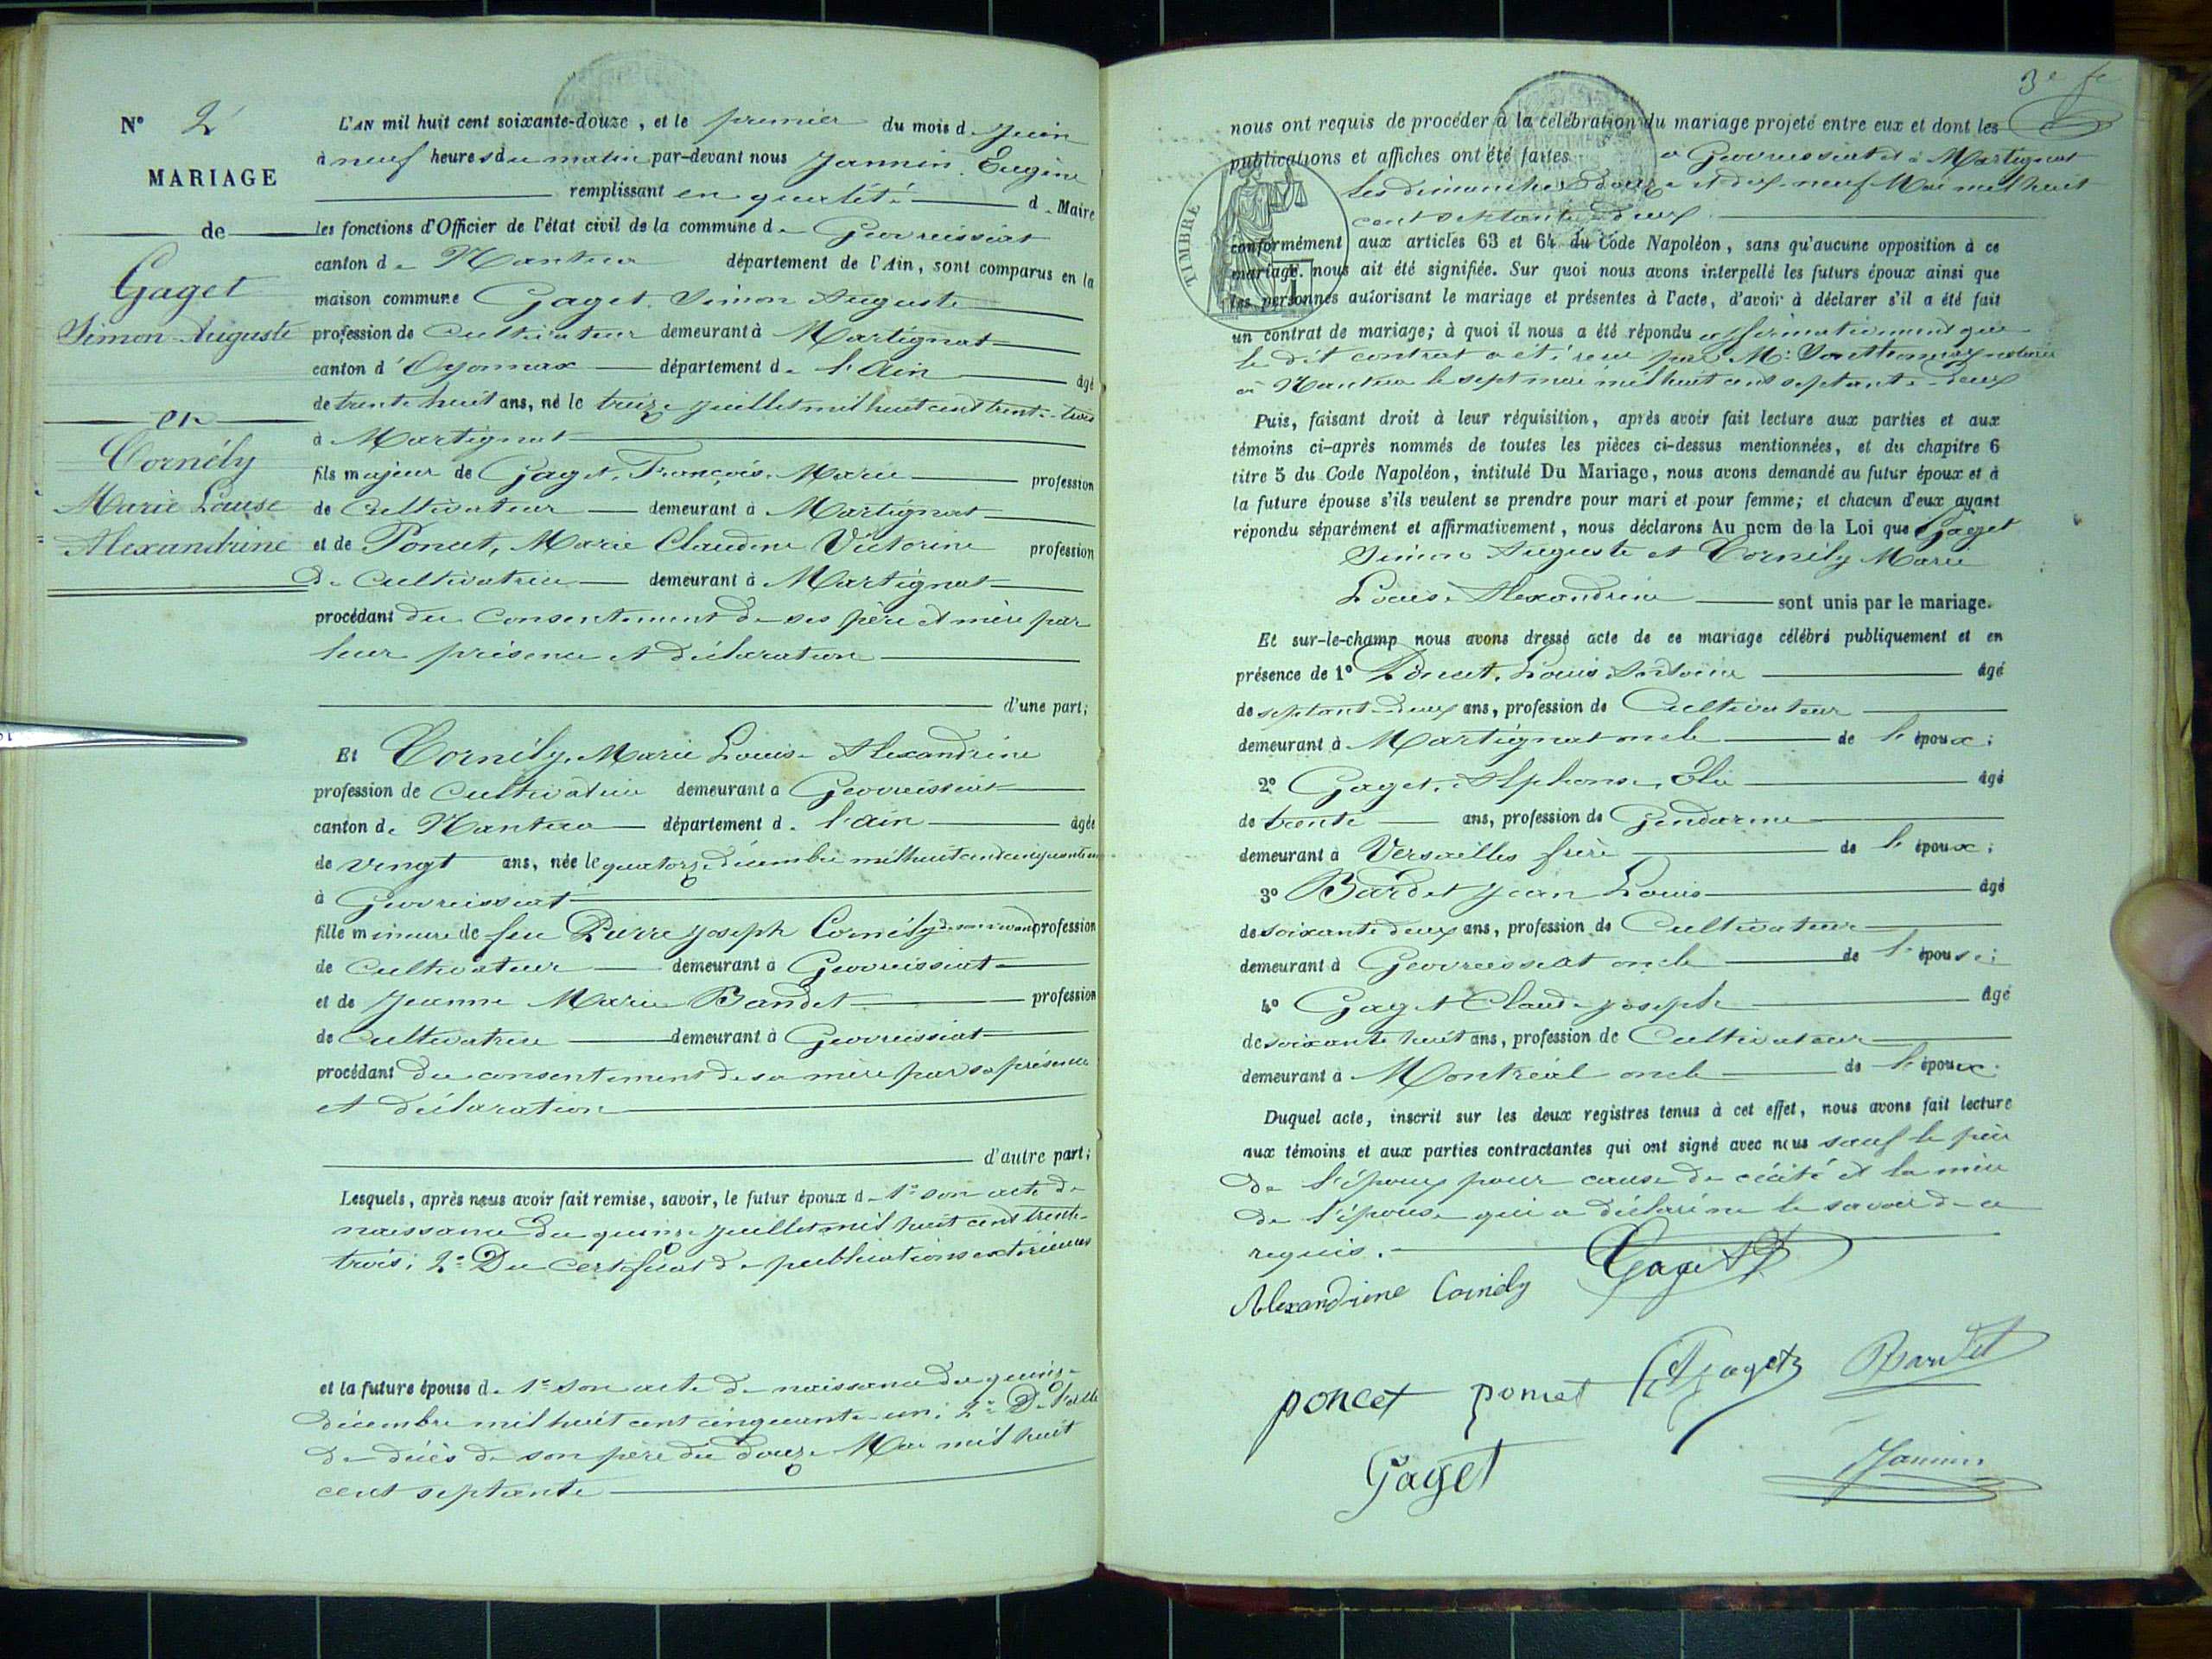 N° 2
MARIAGE
de
Gaget
Simon Auguste
en
Cornély
Marie Louise
Alexandrine
L'AN mil huit cent soixante-douze, et le premier du mois de Juin
à neuf heures du matin par-devant nous Jannin, Eugène
remplissant en qualité de Maire
les fonctions d'Officier de l'état civil de la commune de Geovreissiat
canton de Nantua département de l'Ain, sont comparus en la
maison commune Gaget, Simon Auguste
profession de Cultivateur demeurant à Martignat
canton d'Oyonnax département de l'Ain âgé
de trente huit ans, né le treize juillet mil huit cent trente-trois
à Martignat
fils majeur de Gaget, François, Marie profession
de Cultivateur demeurant à Martignat
et de Poncet, Marie Claudine Victorine profession
de Cultivatrice demeurant à Martignat
procédant du Consentement de ses père et mère par
leur présence et déclaration
d'une part;
Et Cornély, Marie Louise Alexandrine
profession de Cultivatrice demeurant à Geovreissiat
canton de Nantua département de l'Ain âgée
de vingt ans, née le quatorze décembre mil huit cent cinquante un
à Geovreissiat
fille mineure de feu Pierre Joseph Cornély de son vivant profession
de Cultivateur demeurant à Geovreissiat
et de Jeanne Marie Bardet profession
de Cultivatrice demeurant à Geovreissiat
procédant du consentement de sa mère par sa présence
et déclaration
d'autre part;
Lesquels, après nous avoir fait remise, savoir, le futur époux de 1° son acte de
naissance du quinze juillet mil huit cent trente-
trois; 2° Du certificat de publications extérieures
et la future épouse de 1° son acte de naissance du quinze
décembre mil huit cent cinquante-un; 2° De celle
de décès de son père du douze Mai mil huit
cent septante
3e
nous ont requis de procéder à la célébration du mariage projeté entre eux et dont les
publications et affiches ont été faites à Geovreissiat et à Martignat
les dimanches douze et dix-neuf Mai mil huit
cent septante deux
TIMBRE
conformément aux articles 63 et 64 du Code Napoléon, sans qu'aucune opposition à ce
mariage nous ait été signifiée. Sur quoi nous avons interpellé les futurs époux ainsi que
les personnes autorisant le mariage et présentes à l'acte, d'avoir à déclarer s'il a été fait
un contrat de mariage; à quoi il nous a été répondu affirmativement que
le dit contrat a été reçu par Me notaire
à Nantua le sept mai mil huit cent septante-deux
Puis, faisant droit à leur réquisition, après avoir fait lecture aux parties et aux
témoins ci-après nommés de toutes les pièces ci-dessus mentionnées, et du chapitre 6
titre 5 du Code Napoléon, intitulé Du Mariage, nous avons demandé au futur époux et à
la future épouse s'ils veulent se prendre pour mari et pour femme; et chacun d'eux ayant
répondu séparément et affirmativement, nous déclarons Au nom de la Loi que Gaget
Simon Auguste et Cornély Marie
Louise Alexandrine sont unis par le mariage.
Et sur-le-champ nous avons dressé acte de ce mariage célébré publiquement et en
présence de 1° Poncet, Louis Antoine âgé
de septante-deux ans, profession de Cultivateur
demeurant à Martignat oncle de l'époux;
2° Gaget, Alphonse, Elie âgé
de trente ans, profession de Gendarme
demeurant à Versailles frère de l'époux;
3° Bardet Jean Louis âgé
de soixante deux ans, profession de Cultivateur
demeurant à Geovreissiat oncle de l'épouse;
4° Gaget Claude Joseph âgé
de soixante huit ans, profession de Cultivateur
demeurant à Montréal oncle de l'époux.
Duquel acte, inscrit sur les deux registres tenus à cet effet, nous avons fait lecture
aux témoins et aux parties contractantes qui ont signé avec nous sauf le père
de l'époux pour cause de cécité et la mère
de l'épouse qui a déclaré ne le savoir de ce
requis.
Gaget
Alexandrine Cornély
poncet poncet Gaget Bardet
Gaget Jannin